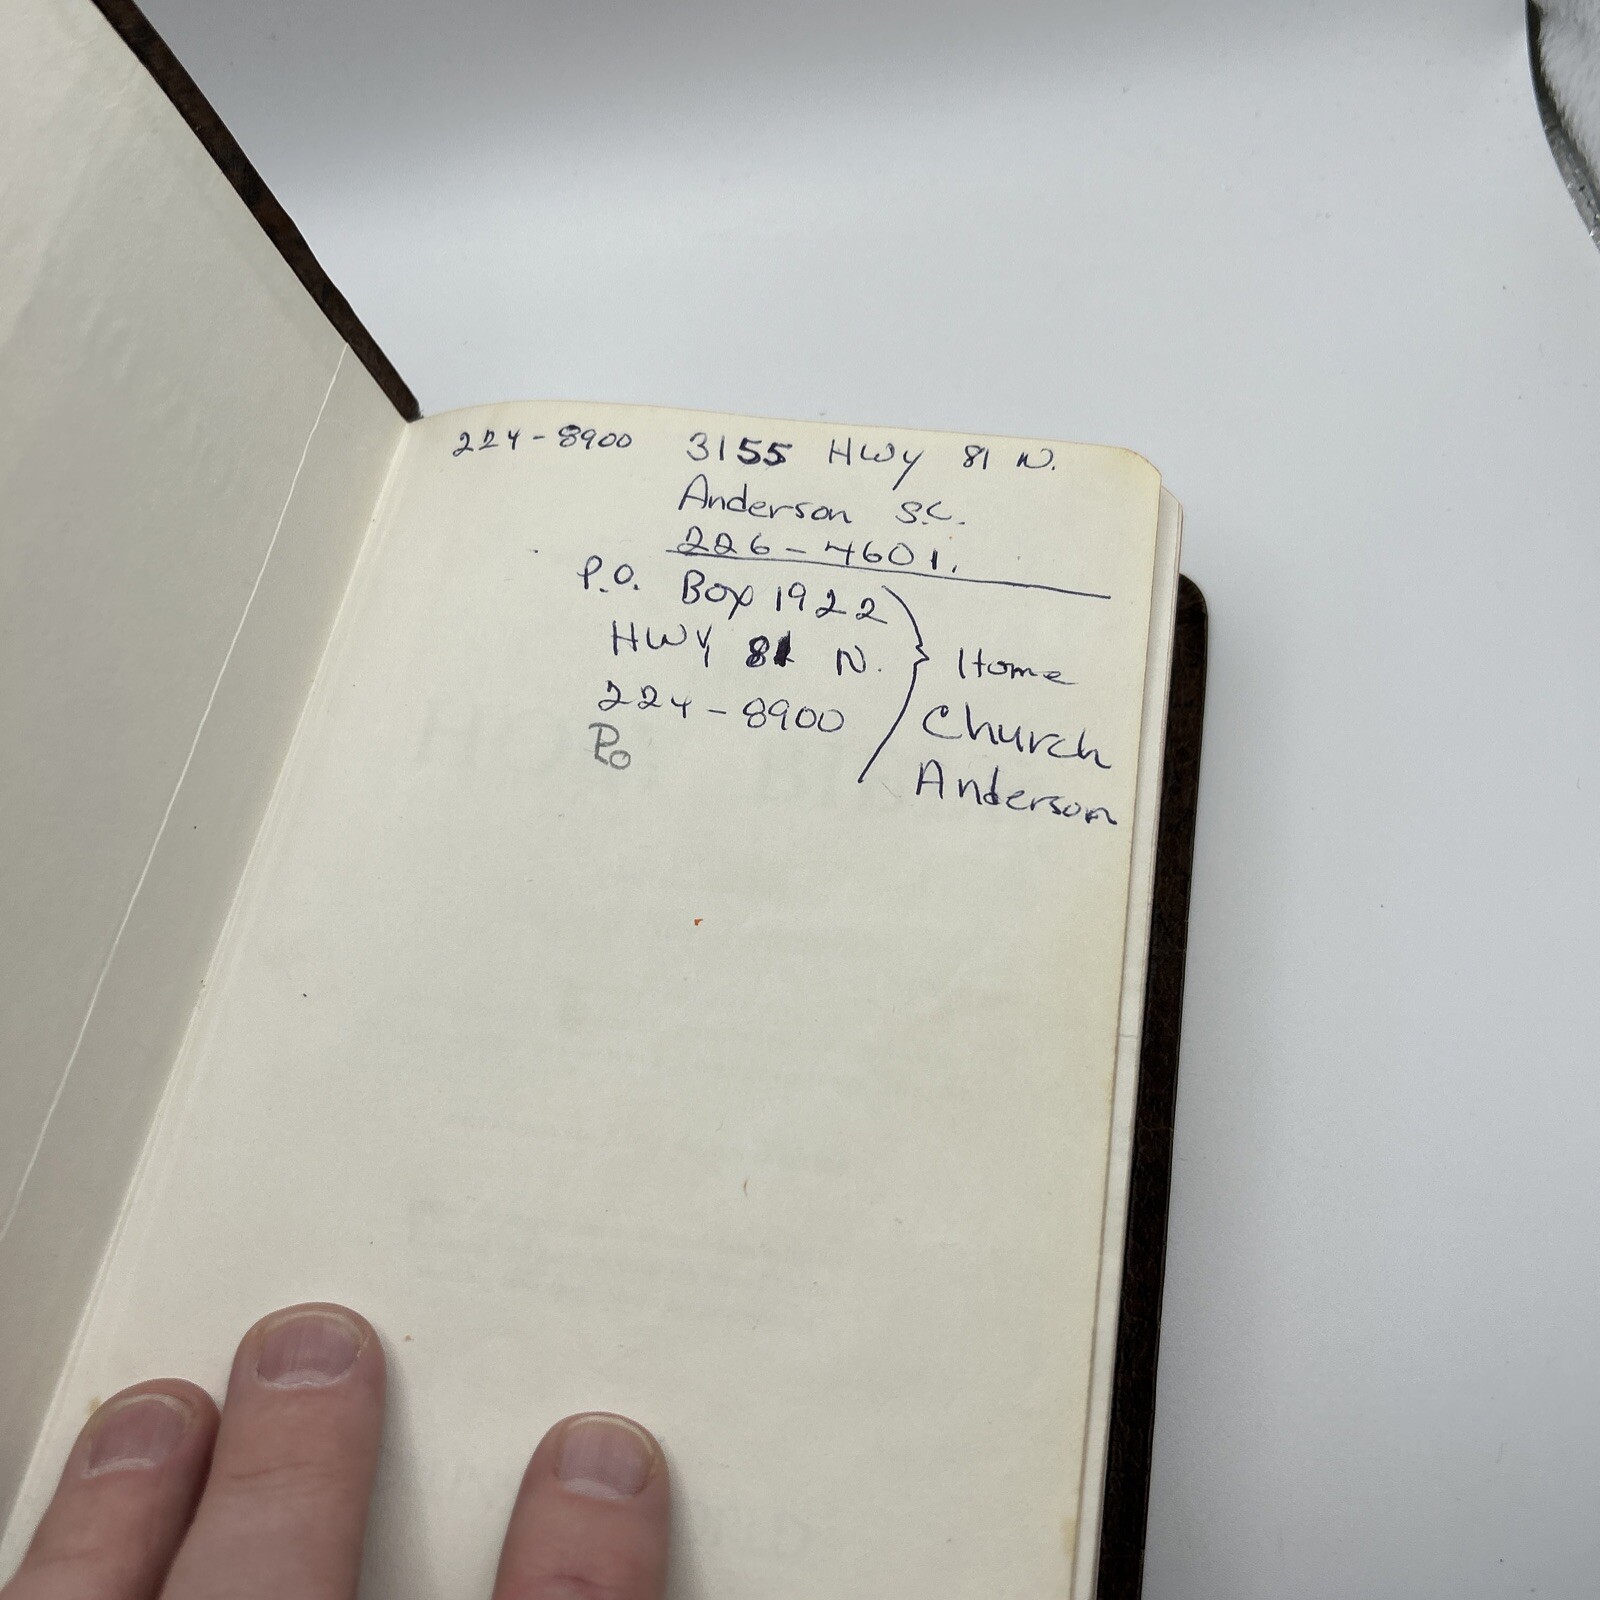 224-8900 3155 HWY 81 N.
Anderson S.C.
226-4601.
P.O. Box 1922
HWY 81 N.
224-8900
Po
Home
Church
Anderson